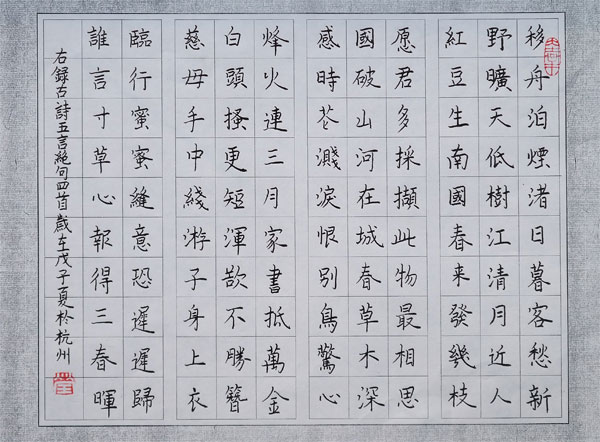 移舟泊煙渚日暮客愁新
野曠天低樹江清月近人
紅豆生南國春来發幾枝
愿君多採擷此物最相思
國破山河在城春草木深
感時花濺淚恨別鳥驚心
烽火連三月家書抵萬金
白頭搔更短渾欲不勝簪
慈母手中綫游子身上衣
臨行蜜蜜縫意恐遲遲歸
誰言寸草心報得三春暉
右録古詩五言絶句四首歲在戊子夏於杭州